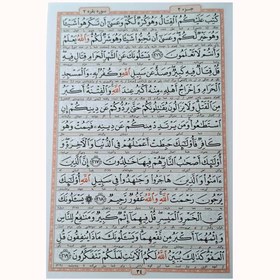 سورة بقرة ٢
جزء ٢
كُتِبَ عَلَيْكُمُ الْقِتَالُ وَهُوَ كُرْهٌ لَكُمْ وَعَسَىٰ أَنْ تَكْرَهُوا شَيْئًا
وَهُوَ خَيْرٌ لَكُمْ وَعَسَىٰ أَنْ تُحِبُّوا شَيْئًا وَهُوَ شَرٌّ لَكُمْ وَاللَّهُ يَعْلَمُ
وَأَنْتُمْ لَا تَعْلَمُونَ ﴿٢١٦﴾ يَسْـَٔلُونَكَ عَنِ الشَّهْرِ الْحَرَامِ قِتَالٍ فِيهِ
قُلْ قِتَالٌ فِيهِ كَبِيرٌ وَصَدٌّ عَنْ سَبِيلِ اللَّهِ وَكُفْرٌ بِهِ وَالْمَسْجِدِ
الْحَرَامِ وَإِخْرَاجُ أَهْلِهِ مِنْهُ أَكْبَرُ عِنْدَ اللَّهِ وَالْفِتْنَةُ أَكْبَرُ
مِنَ الْقَتْلِ وَلَا يَزَالُونَ يُقَٰتِلُونَكُمْ حَتَّىٰ يَرُدُّوكُمْ عَنْ دِينِكُمْ إِنِ
اسْتَطَٰعُوا وَمَنْ يَرْتَدِدْ مِنْكُمْ عَنْ دِينِهِ فَيَمُتْ وَهُوَ
كَافِرٌ فَأُولَٰئِكَ حَبِطَتْ أَعْمَٰلُهُمْ فِي الدُّنْيَا وَالْآخِرَةِ
وَأُولَٰئِكَ أَصْحَٰبُ النَّارِ هُمْ فِيهَا خَٰلِدُونَ ﴿٢١٧﴾ إِنَّ الَّذِينَ
ءَامَنُوا وَالَّذِينَ هَاجَرُوا وَجَٰهَدُوا فِي سَبِيلِ اللَّهِ أُولَٰئِكَ
يَرْجُونَ رَحْمَتَ اللَّهِ وَاللَّهُ غَفُورٌ رَحِيمٌ ﴿٢١٨﴾ يَسْـَٔلُونَكَ
عَنِ الْخَمْرِ وَالْمَيْسِرِ قُلْ فِيهِمَا إِثْمٌ كَبِيرٌ وَمَنَٰفِعُ لِلنَّاسِ
وَإِثْمُهُمَا أَكْبَرُ مِنْ نَفْعِهِمَا وَيَسْـَٔلُونَكَ مَاذَا يُنْفِقُونَ قُلِ
الْعَفْوَ كَذَٰلِكَ يُبَيِّنُ اللَّهُ لَكُمُ الْآيَٰتِ لَعَلَّكُمْ تَتَفَكَّرُونَ ﴿٢١٩﴾
٣٤